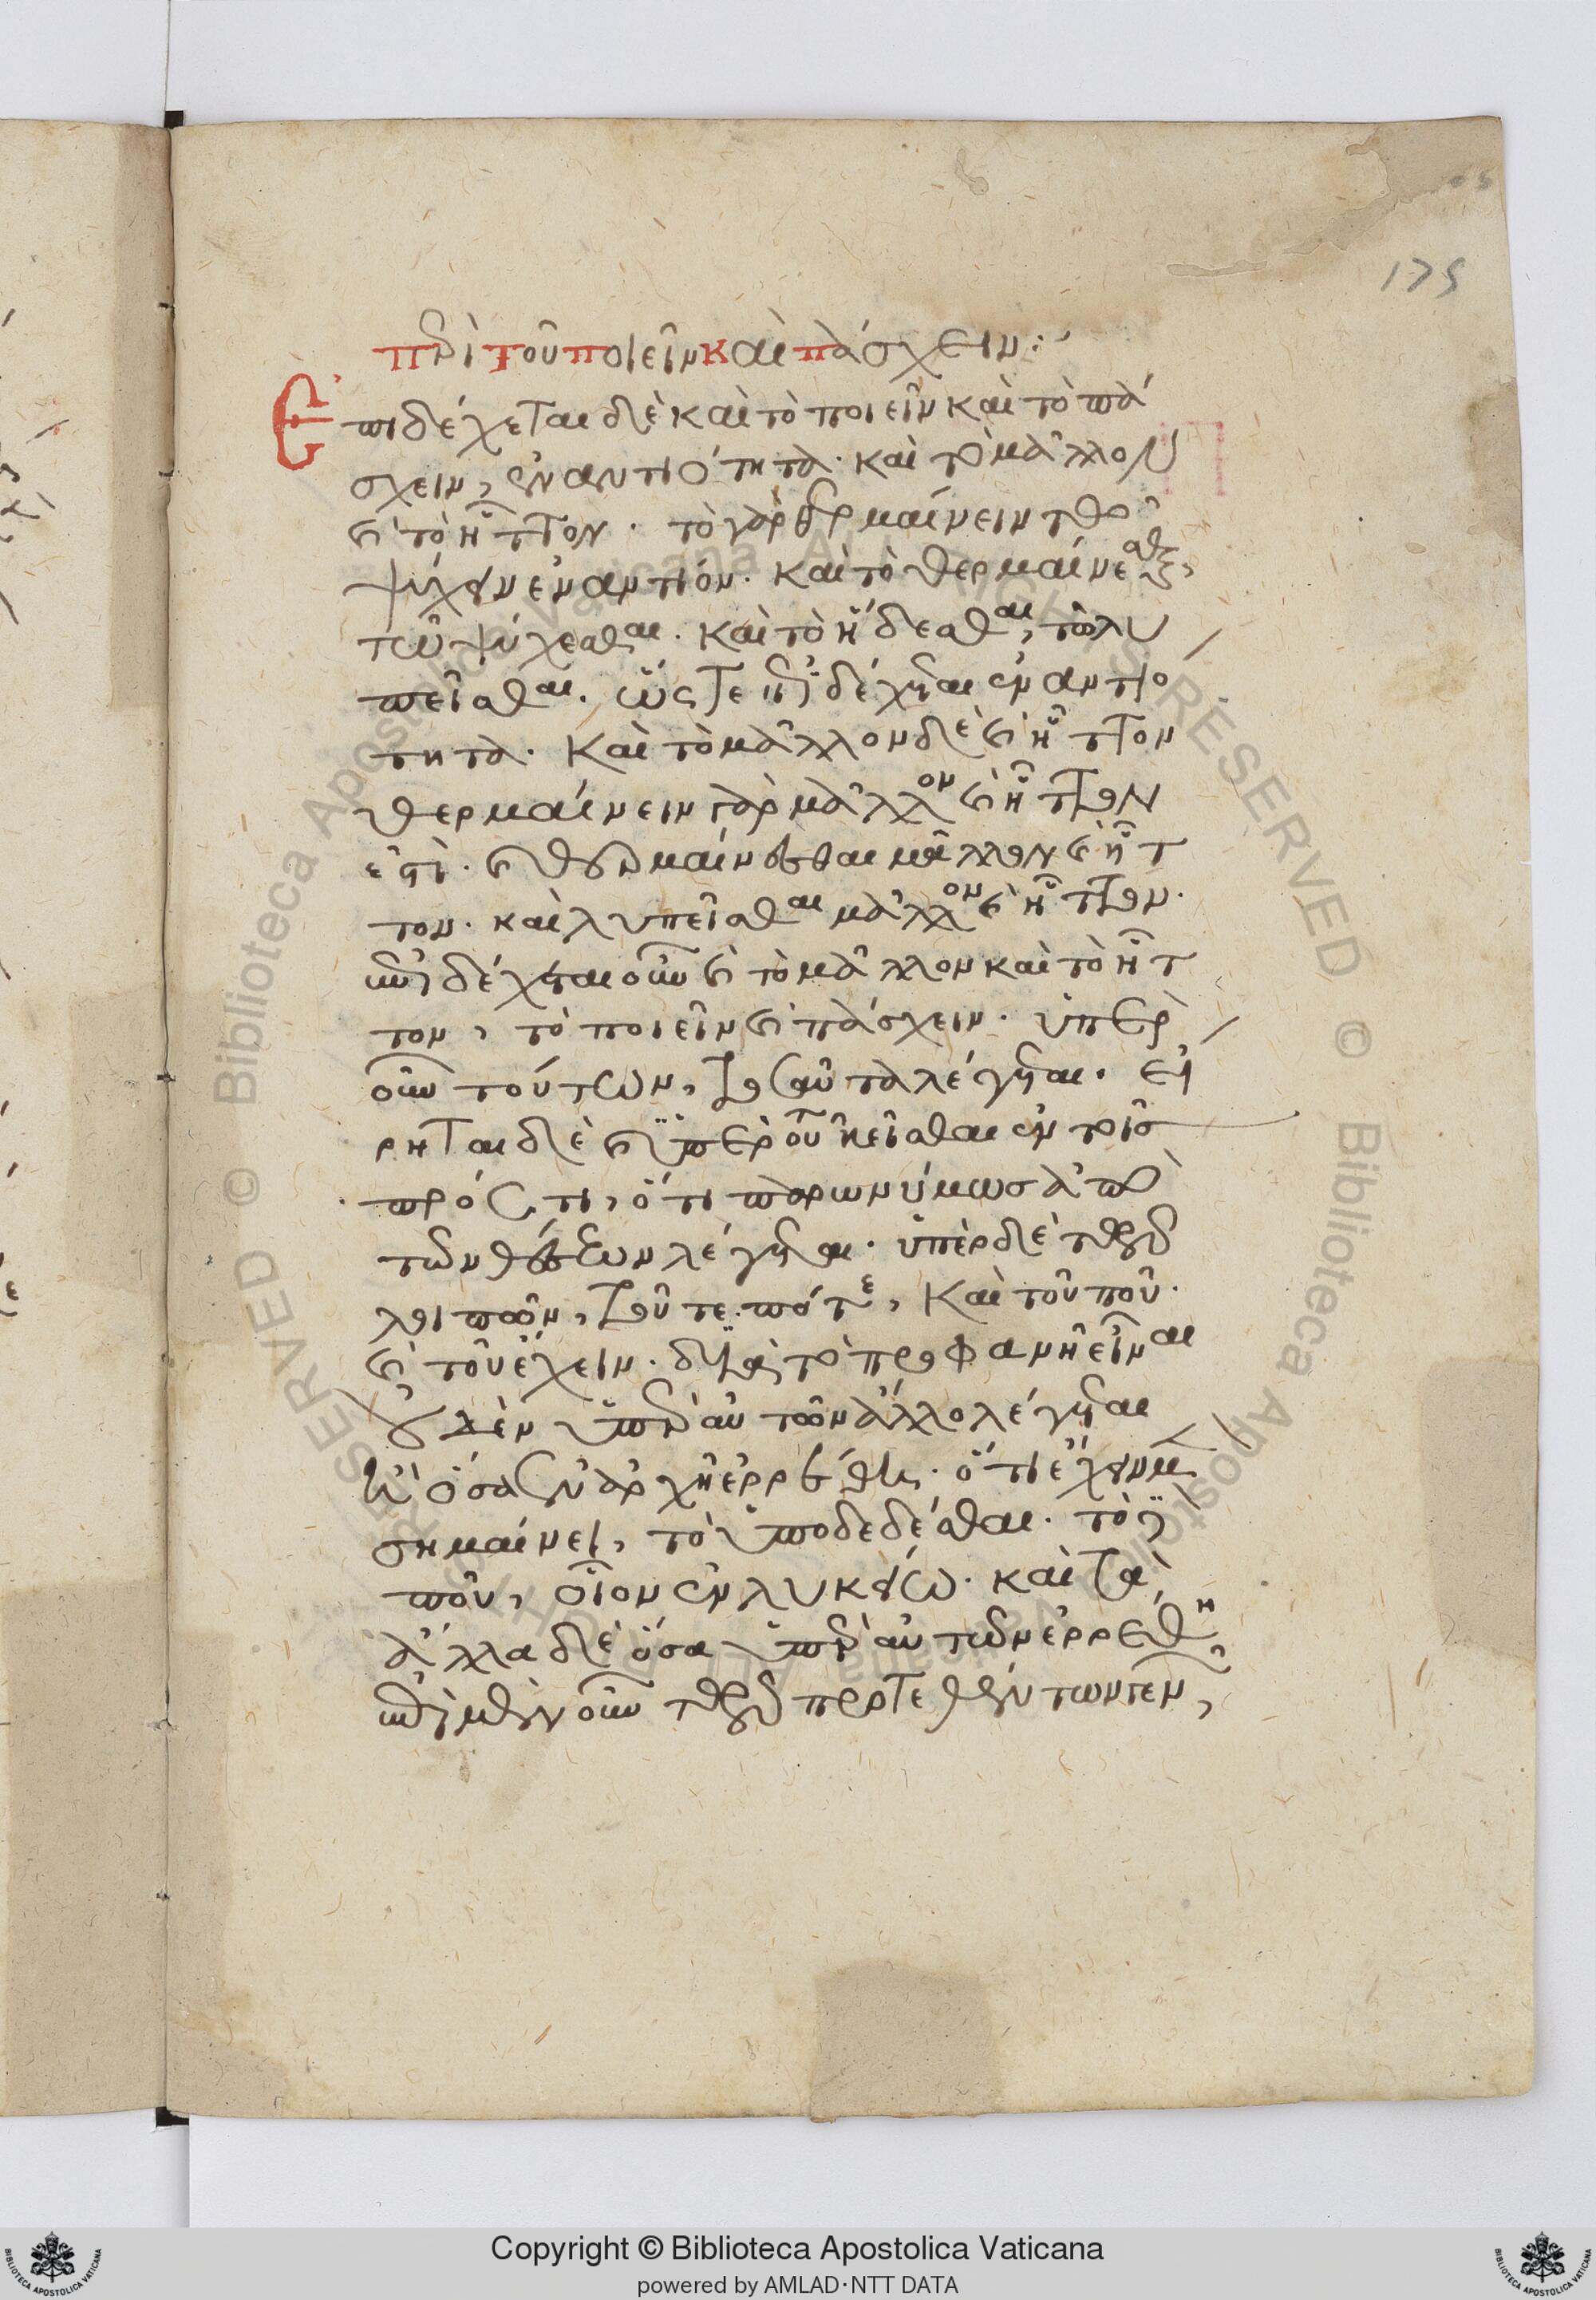 175
περὶ τοῦ ποιεῖν καὶ πάσχειν:
Ἐπιδέχεται δὲ καὶ τὸ ποιεῖν καὶ τὸ πά
σχειν, ἐναντιότητα· καὶ τὸ μᾶλλον
καὶ τὸ ἧττον· τὸ γὰρ θερμαίνειν τῶ
ψύχειν ἐναντίον· καὶ τὸ θερμαίνεσθαι,
τῶ ψύχεσθαι· καὶ τὸ ἥδεσθαι, τῶ λυ
πεῖσθαι· ὥστε ἐπιδέχεται ἐναντιό
τητα· καὶ τὸ μᾶλλον δὲ καὶ ἧττον
θερμαίνειν γὰρ μᾶλλον καὶ ἧττον
ἐστὶ· καὶ θερμαίνεσθαι μᾶλλον καὶ ἧτ
τον· καὶ λυπεῖσθαι μᾶλλον καὶ ἧττον·
ἐπιδέχεται οὖν καὶ τὸ μᾶλλον καὶ τὸ ἧτ
τον, τὸ ποιεῖν καὶ πάσχειν· ὑπὲρ
οὖν τούτων, τοσαῦτα λέγεται· εἴ
ρηται δὲ καὶ ὑπὲρ τοῦ κεῖσθαι ἐν τοῖσ
πρός τι, ὅτι παρωνύμωσ ἀπὸ
τῶν θέσεων λέγεται· ὑπὲρ δὲ τῶν
λοιπῶν, τοῦ τε πότε, καὶ τοῦ ποῦ·
καὶ τοῦ ἔχειν· διὰ τὸ προφανῆ εἶναι
οὐδὲν ὑπὲρ αὐτῶν ἄλλο λέγεται
ἢ ὅσα ἐν ἀρχῆ ἐρρέθη· ὅτι ἔχειν μὲν
σημαίνει, τὸ ὑποδεδέσθαι· τὸ δὲ
ποῦ, οἷον ἐν λυκείω· καὶ τὰ
ἄλλα δὲ ὅσα ὑπὲρ αὐτῶν ἐρρέθη,
ἐπὶ μὲν οὖν τῶν προτεθέντων γεν,
Copyright © Biblioteca Apostolica Vaticana
powered by AMLAD·NTT DATA